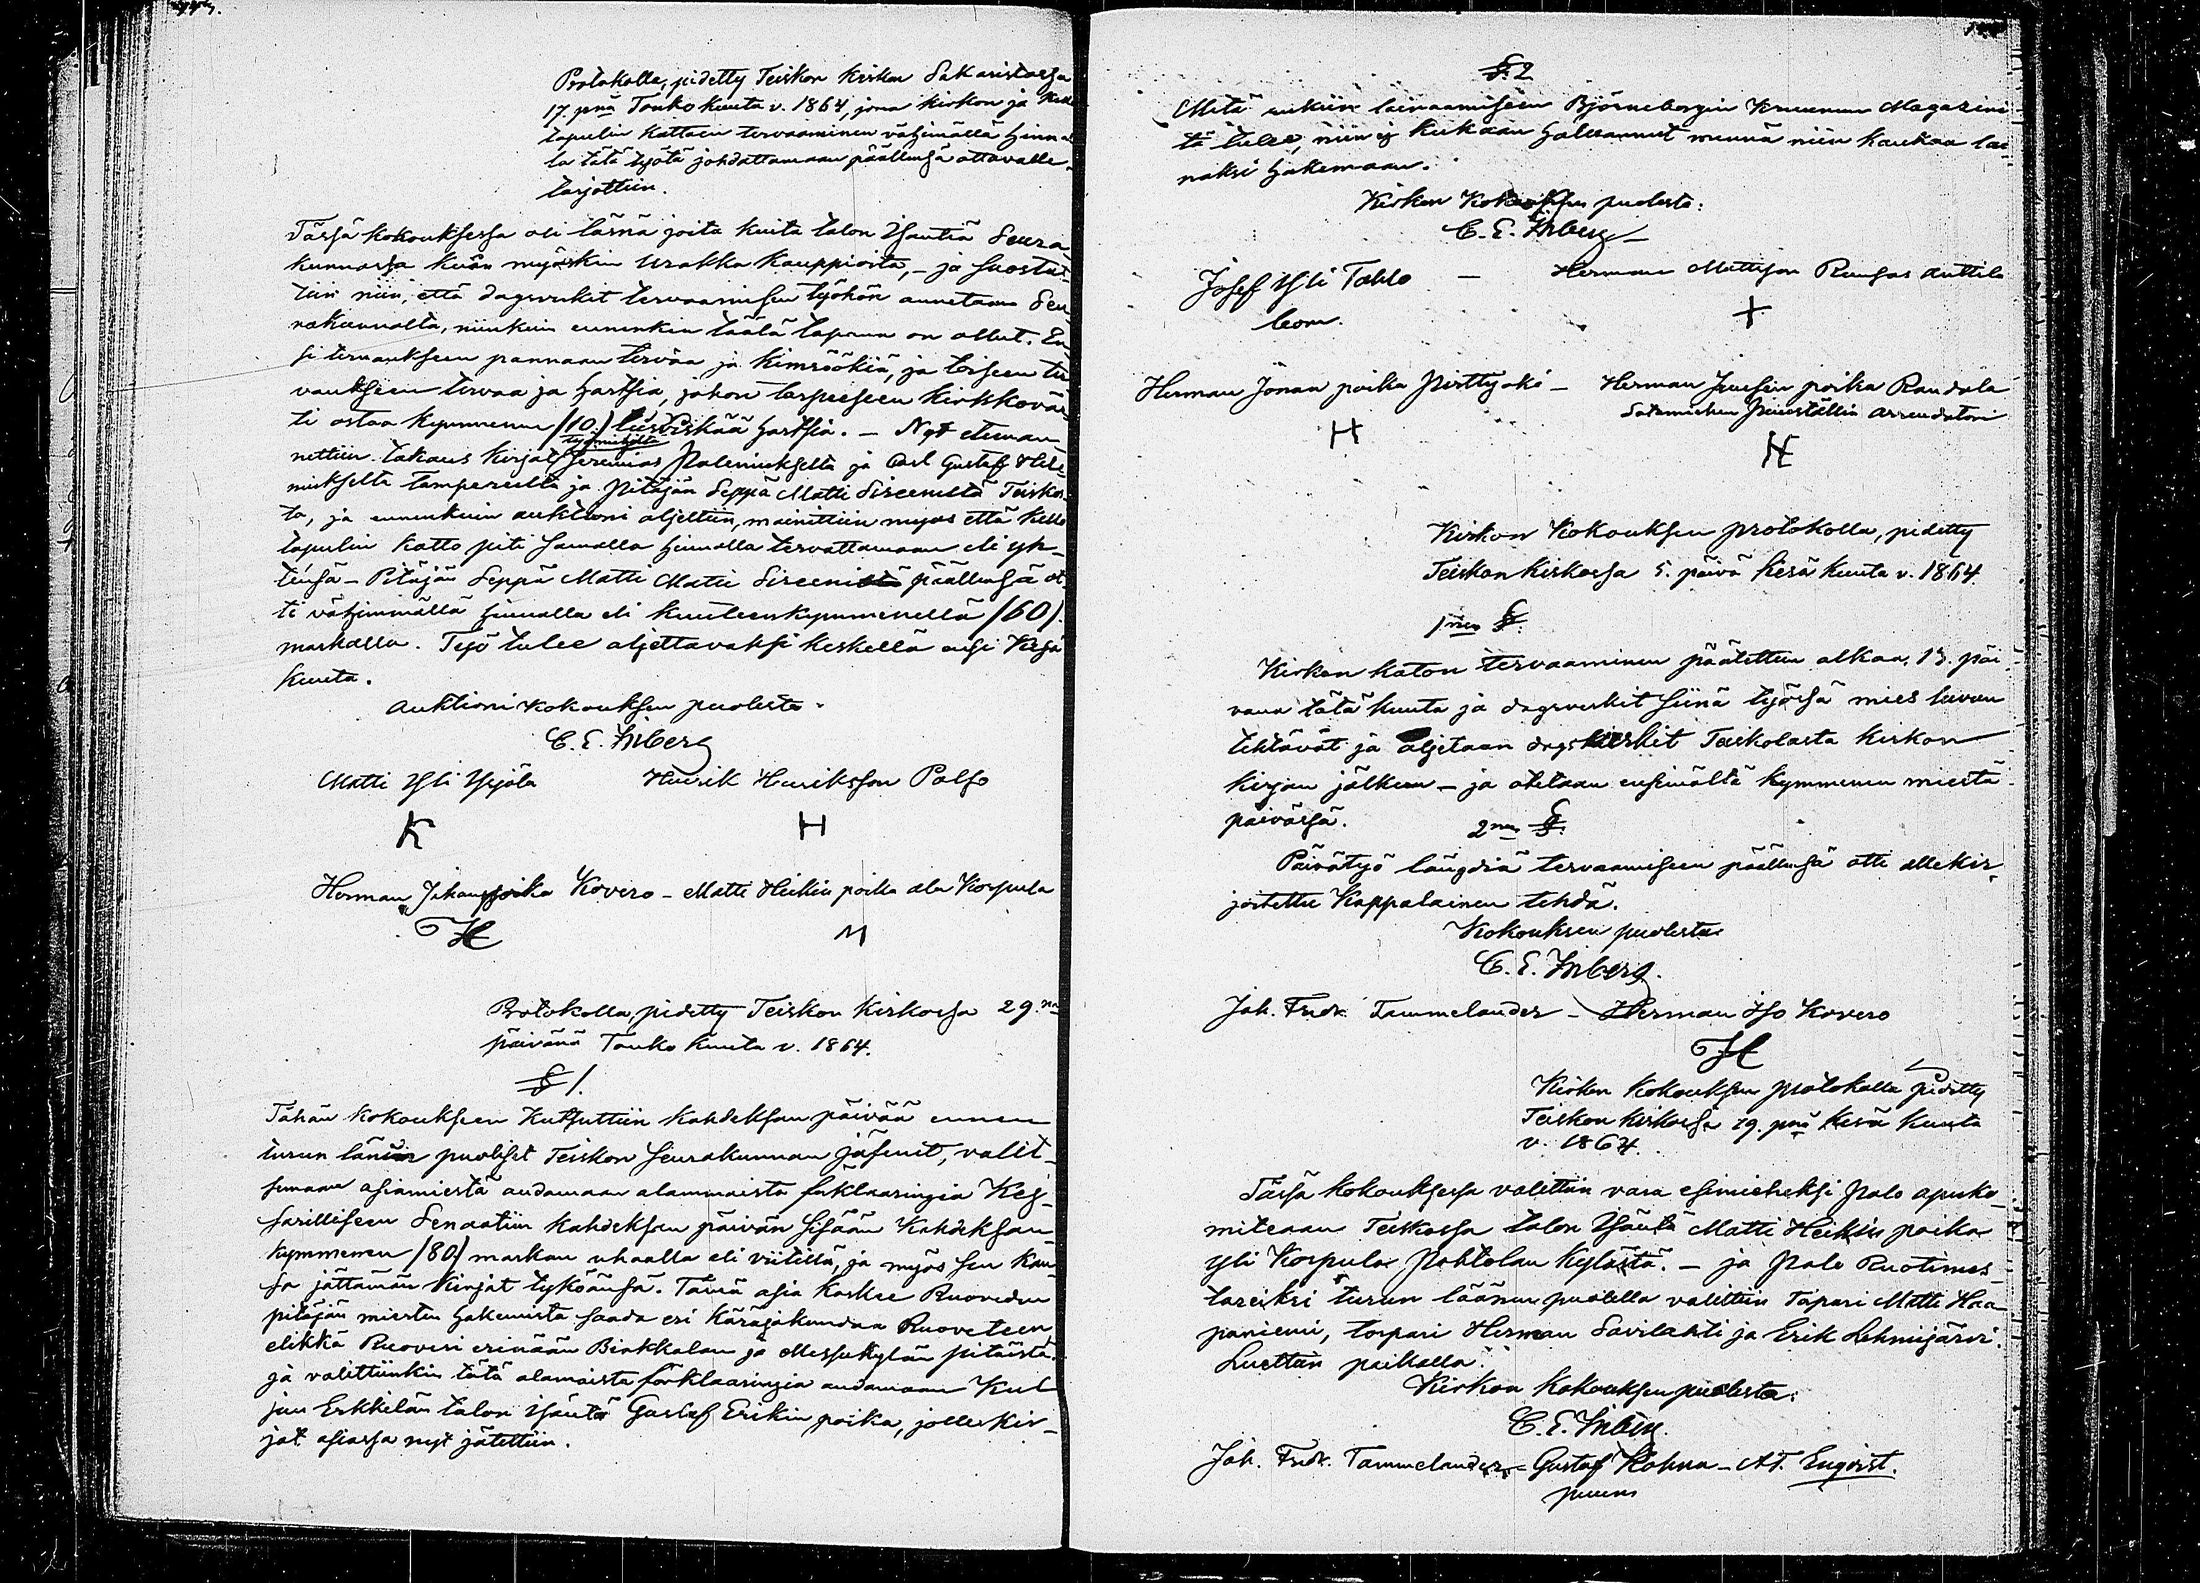 Protokolla, pidetty Teiskon kirkon Sakaristossa
17. pnä Toukokuuta v. 1864, jona kirkon ja kello
tapulin katteen tervaaminen vähimällä hinnal
la tätä työtä johdattamaan päällensä ottavalle
tarjottiin.
Tässä kokouksessa oli läsnä joita kuita talon Isäntiä Seura
kunnassa kuin myöskin Urakka kauppioita, – ja suostut
tiin niin, että dagsverkit tervaamisen työhön annetaan Seu
rakunnalta, niinkuin ennenkin täälä tapana on ollut. En
si tervaukseen pannaan tervaa ja kimröökiä, ja toiseen ter
vaukseen tervaa ja hartsia, johon tarpeeseen kirkkovär
ti ostaa kymmenen /10./ leiviskää hartsia. – Nyt eteenan
työmiehiltä
nettiin takaus kirjat Jeremias Paleniukselta ja Carl Gustaf Hele
niukselta tampereelta ja Pitäjän Seppä Matti Sireenistä Teisko
ta, ja ennenkuin auktioni aljettiin, mainittiin myös että kello
tapulin katto piti samalla hinnalla tervattamaan eli yh-
teensä – Pitäjän Seppä Matti Matti Sireeni päällensä ot
ti vähimmällä hinnalla eli kuuteenkymmenellä /60/.
markalla. Työ tulee aljettavaksi keskellä ensi Kesä
kuuta.
Auktioni kokouksen puolesta.
C. E. Inberg
Matti Yli Yrjölä Henrik Henriksson Palso
K H
Herman Johanpoika Kovero – Matti Heikin poika ala Korpula
H M
Protokolla, pidetty Teiskon Kirkossa 29.nä
päivänä Toukokuuta v. 1864.
§ 1.
Tähän kokoukseen kutsuttiin kahdeksan päivää ennen
turun läänin puoliset Teiskon seurakunnan jäsenet, valit-
semaan asiamiestä andamaan alammaista förklaaringia Key-
sarilliseen Senaatiin kahdeksan päivän sisään Kahdeksan-
kymmenen /80/ markan uhaalla eli viitillä, ja myös sen kan-
sa jättämän kirjat tyköänsä. Tämä asia koskee Ruoveden
pitäjän miesten hakemista saada eri käräjäkundaa Ruoveteen
elikkä Ruovesi erinään Birkkalan ja Messukylän pitäistä.
ja valittiinkin tätä alamaista förklaaringia andamaan Kul
jun Erkkilän talon Isäntä Gustaf Erikin poika, jolle kir-
jat asiassa nyt jätettiin.
§ 2
Mitä enkiin lainaamiseen Björneborgin Kruunun Magazini
tä tulee, niin ei kukaan halunnut mennä niin kaukaa lai
naksi hakemaan.
Kirkon Kokouksen puolesta:
C. E. Inberg
Josef Yli Tahlo – Herman Mattsson Rungas Anttila
leom. +
Herman Jonan poika Pirttijoki – Herman Juusen poika Randala
H Arrendatori
H
Kirkon Kokouksen protokolla, pidetty
Teiskon kirkossa 5. päivä Kesäkuuta v. 1864.
1nen §.
Kirkon katon tervaaminen päätettiin alkaa 13. päi
vänä tätä kuuta ja dagsverkit siinä työssä mies luvun
tehtävät ja aljetaan dagsverkit Teiskolasta kirkon
kirjan jälkeen – ja otetaan ensimältä kymmenen miestä
päivässä.
2nen §.
Päivätyö längdiä tervaamiseen päällensä otti allekir-
joitettu Kappalainen tehdä.
Kokouksen puolesta
C. E. Inberg.
Joh. Fredr. Tammelander – Herman Iso Kovero
H
Kirkon kokouksen protokolla pidetty
Teiskon kirkossa 29. pnä Kesä Kuuta
v. 1864.
Tässä kokouksessa valittiin vara esimieheksi Palo apuko
miteaan Teiskossa talon Isäntä Matti Heikin poika
Yli Korpula Pohtolan kylästä. – ja Palo Ruotimes-
tareiksi turun läänin puolella valittiin Tapari Matti Haa
paniemi, torpari Herman Savilahti ja Erik Lehmijärvi.
Luettu paikalla.
Kirkon kokouksen puolesta:
C. E. Inberg.
Joh. Fredr. Tammelander – Gustaf Kohna – A. F. Enqvist.